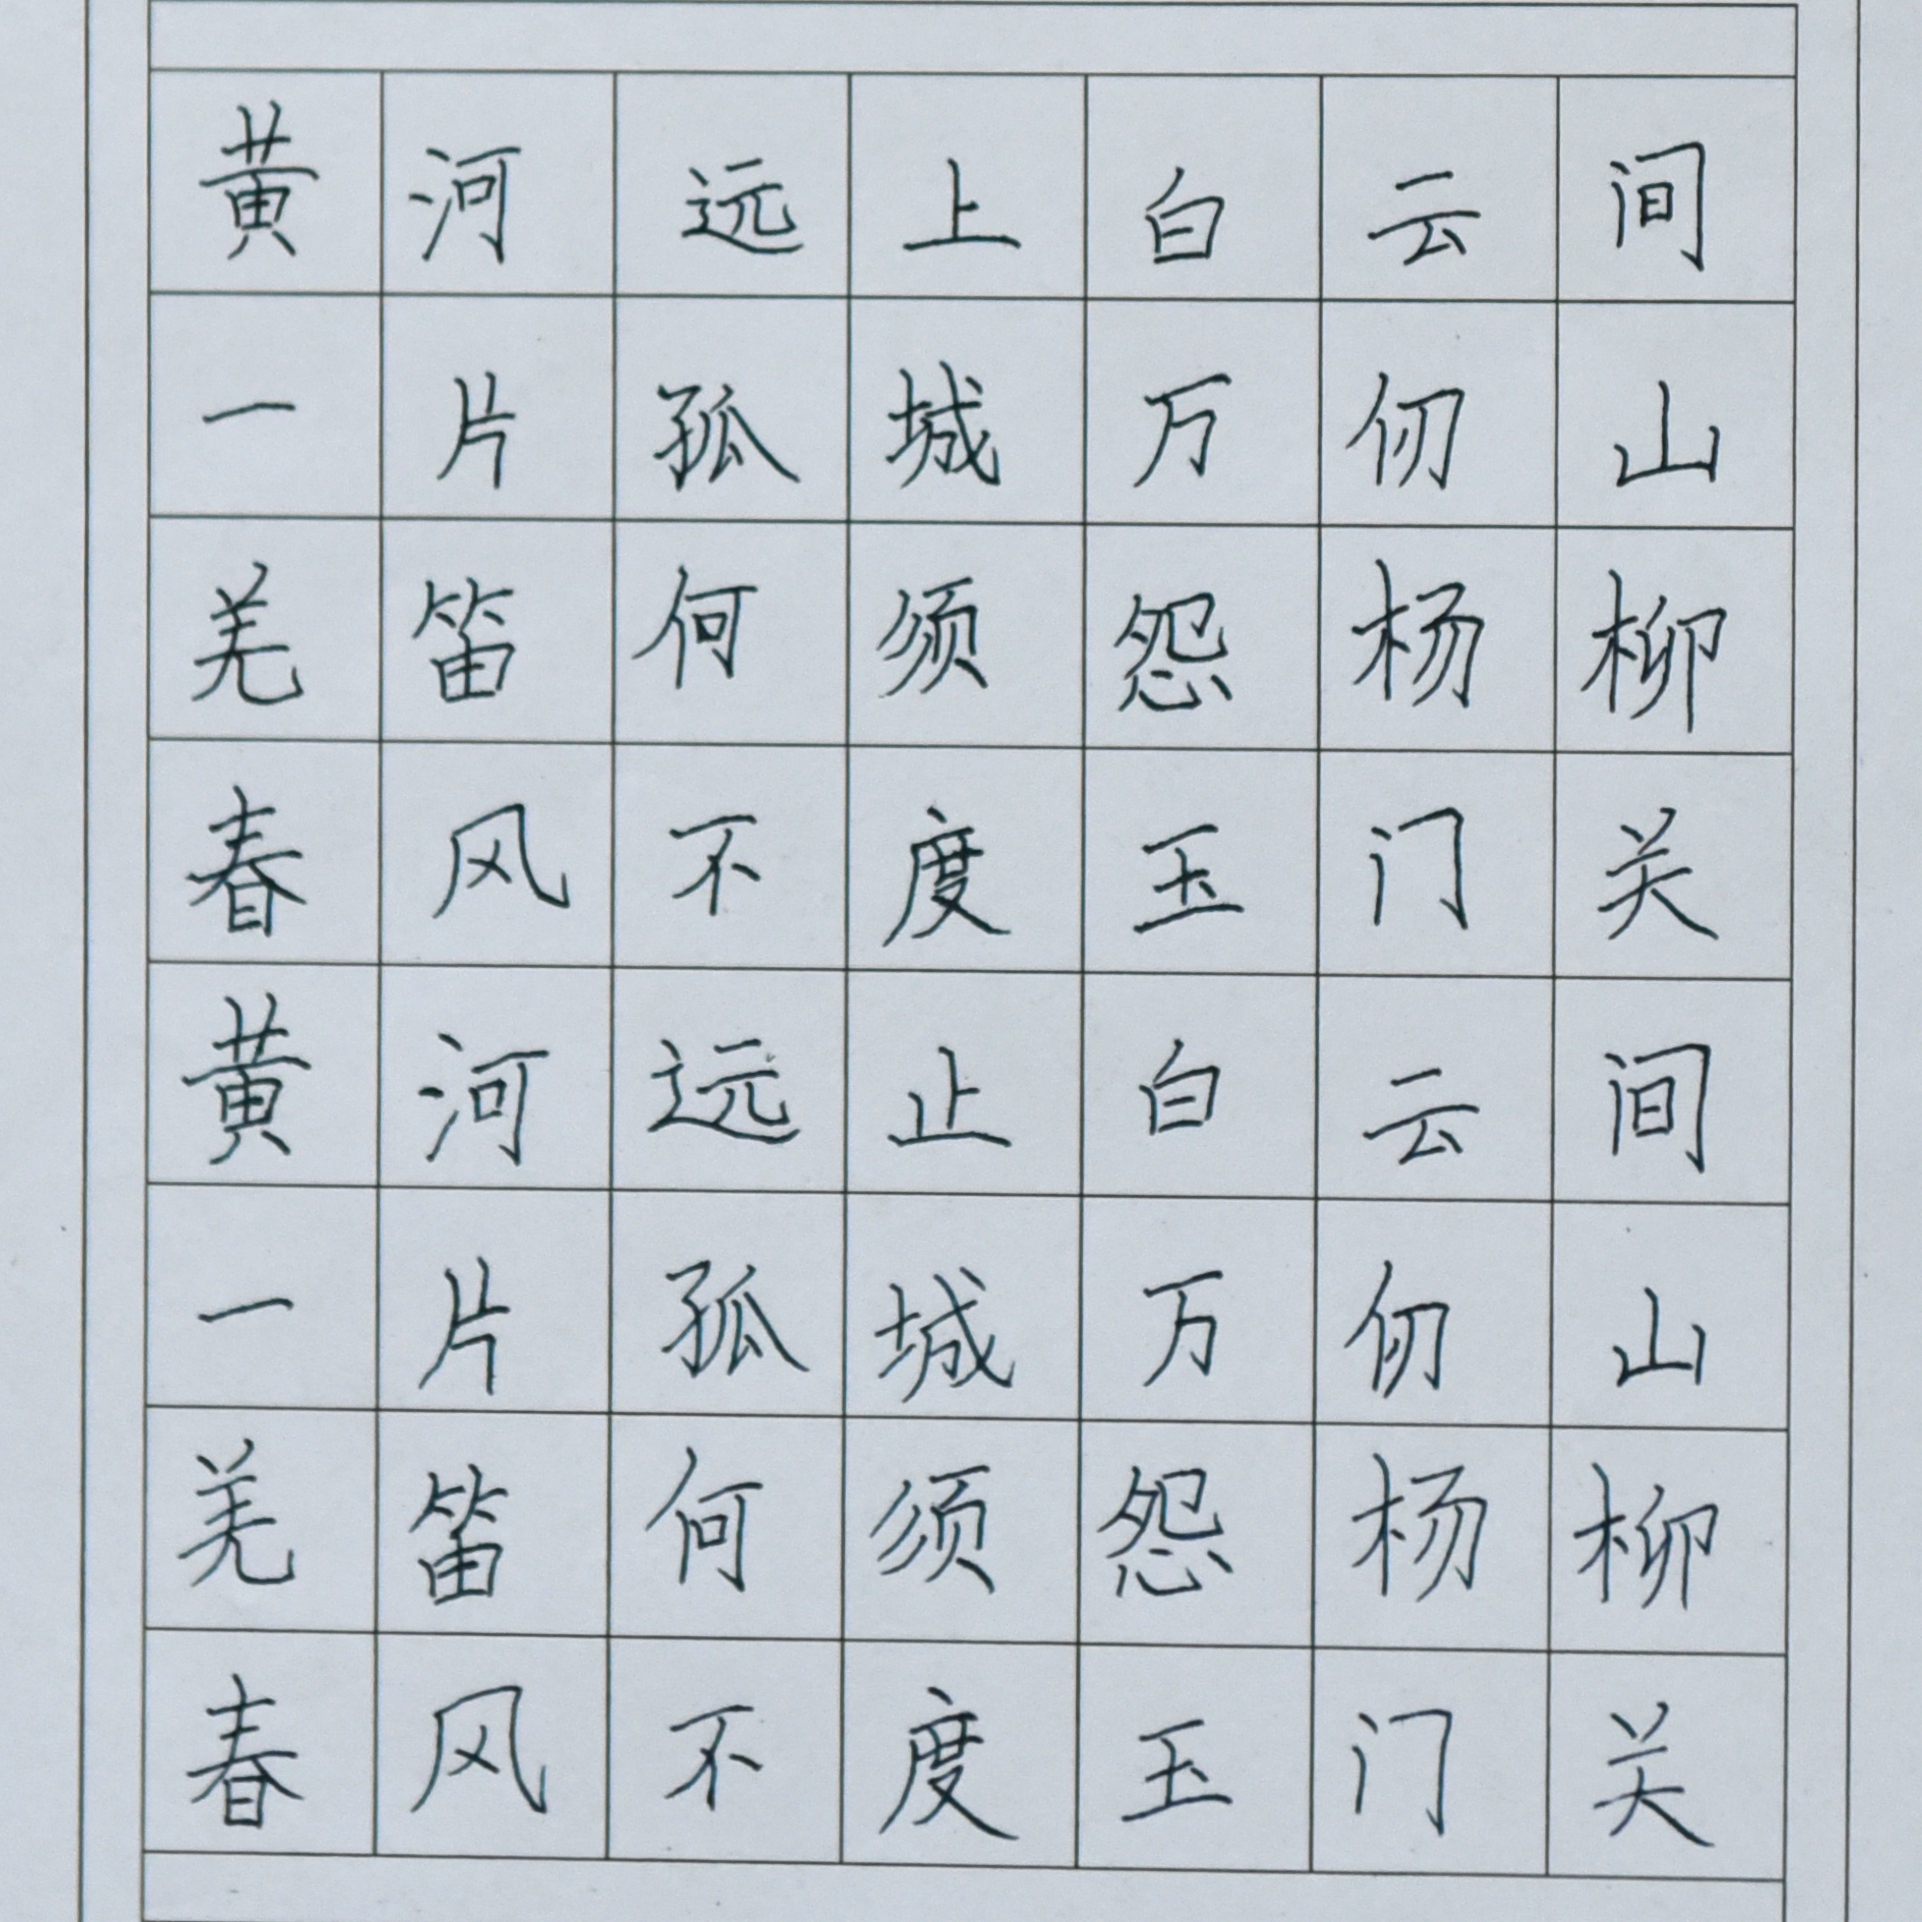 黄河远上白云间
一片孤城万仞山
羌笛何须怨杨柳
春风不度玉门关
黄河远止白云间
一片孤城万仞山
羌笛何须怨杨柳
春风不度玉门关